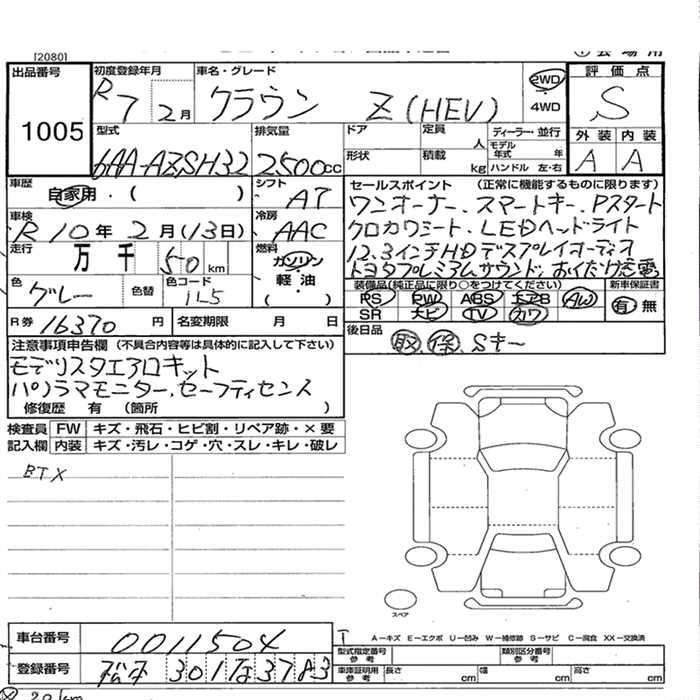 [2080]
出品番号 初度登録年月 車名・グレード 2WD 評価点
1005 R7 2月 クラウン Z(HEV) 4WD S
型式 排気量 ドア 定員 人 ディーラー・並行 外装 内装
6AA-AZSH32 2500cc 形状 積載 kg モデル年式 年 ハンドル 左・右 A A
車歴 自家用・( ) シフト AT セールスポイント (正常に機能するものに限ります)
ワンオーナー、スマートキー、Pスタート
車検 R10年2月(13日) 冷房 AAC クロカワシート、LEDヘッドライト
走行 万 千 50 km 燃料 ガソリン 軽油 ( ) 12.3インチHDディスプレイオーディオ
トヨタプレミアムサウンド、おくだけ充電
色 グレー 色替 色コード 1L5 装備品(純正品に限り○をつけてください) 新車保証書
PS PW ABS エアB AW 有 無
SR ナビ TV カワ
R券 16370円 名変期限 月 日 後日品 取、保、Sキー
注意事項申告欄 (不具合内容等は具体的に記入して下さい)
モデリスタエアロキット
パノラマモニター、セーフティセンス
修復歴 有 (箇所 )
検査員 FW キズ・飛石・ヒビ割・リペア跡・×要
記入欄 内装 キズ・汚レ・コゲ・穴・スレ・キレ・破レ
BTX
スペア
A-キズ E-エクボ U-凹み W-補修跡 S-サビ C-腐食 XX-交換済
車台番号 0011504 型式指定番号 参考 類別区分番号 参考
登録番号 松本 301 な 3783 車庫証明用 参考 長さ cm 幅 cm 高さ cm